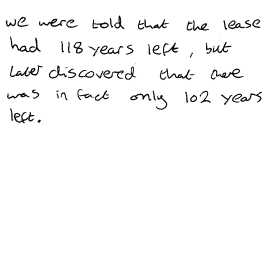 we were told that the lease
had 118 years left, but
later discovered that there
was in fact only 102 years
left.